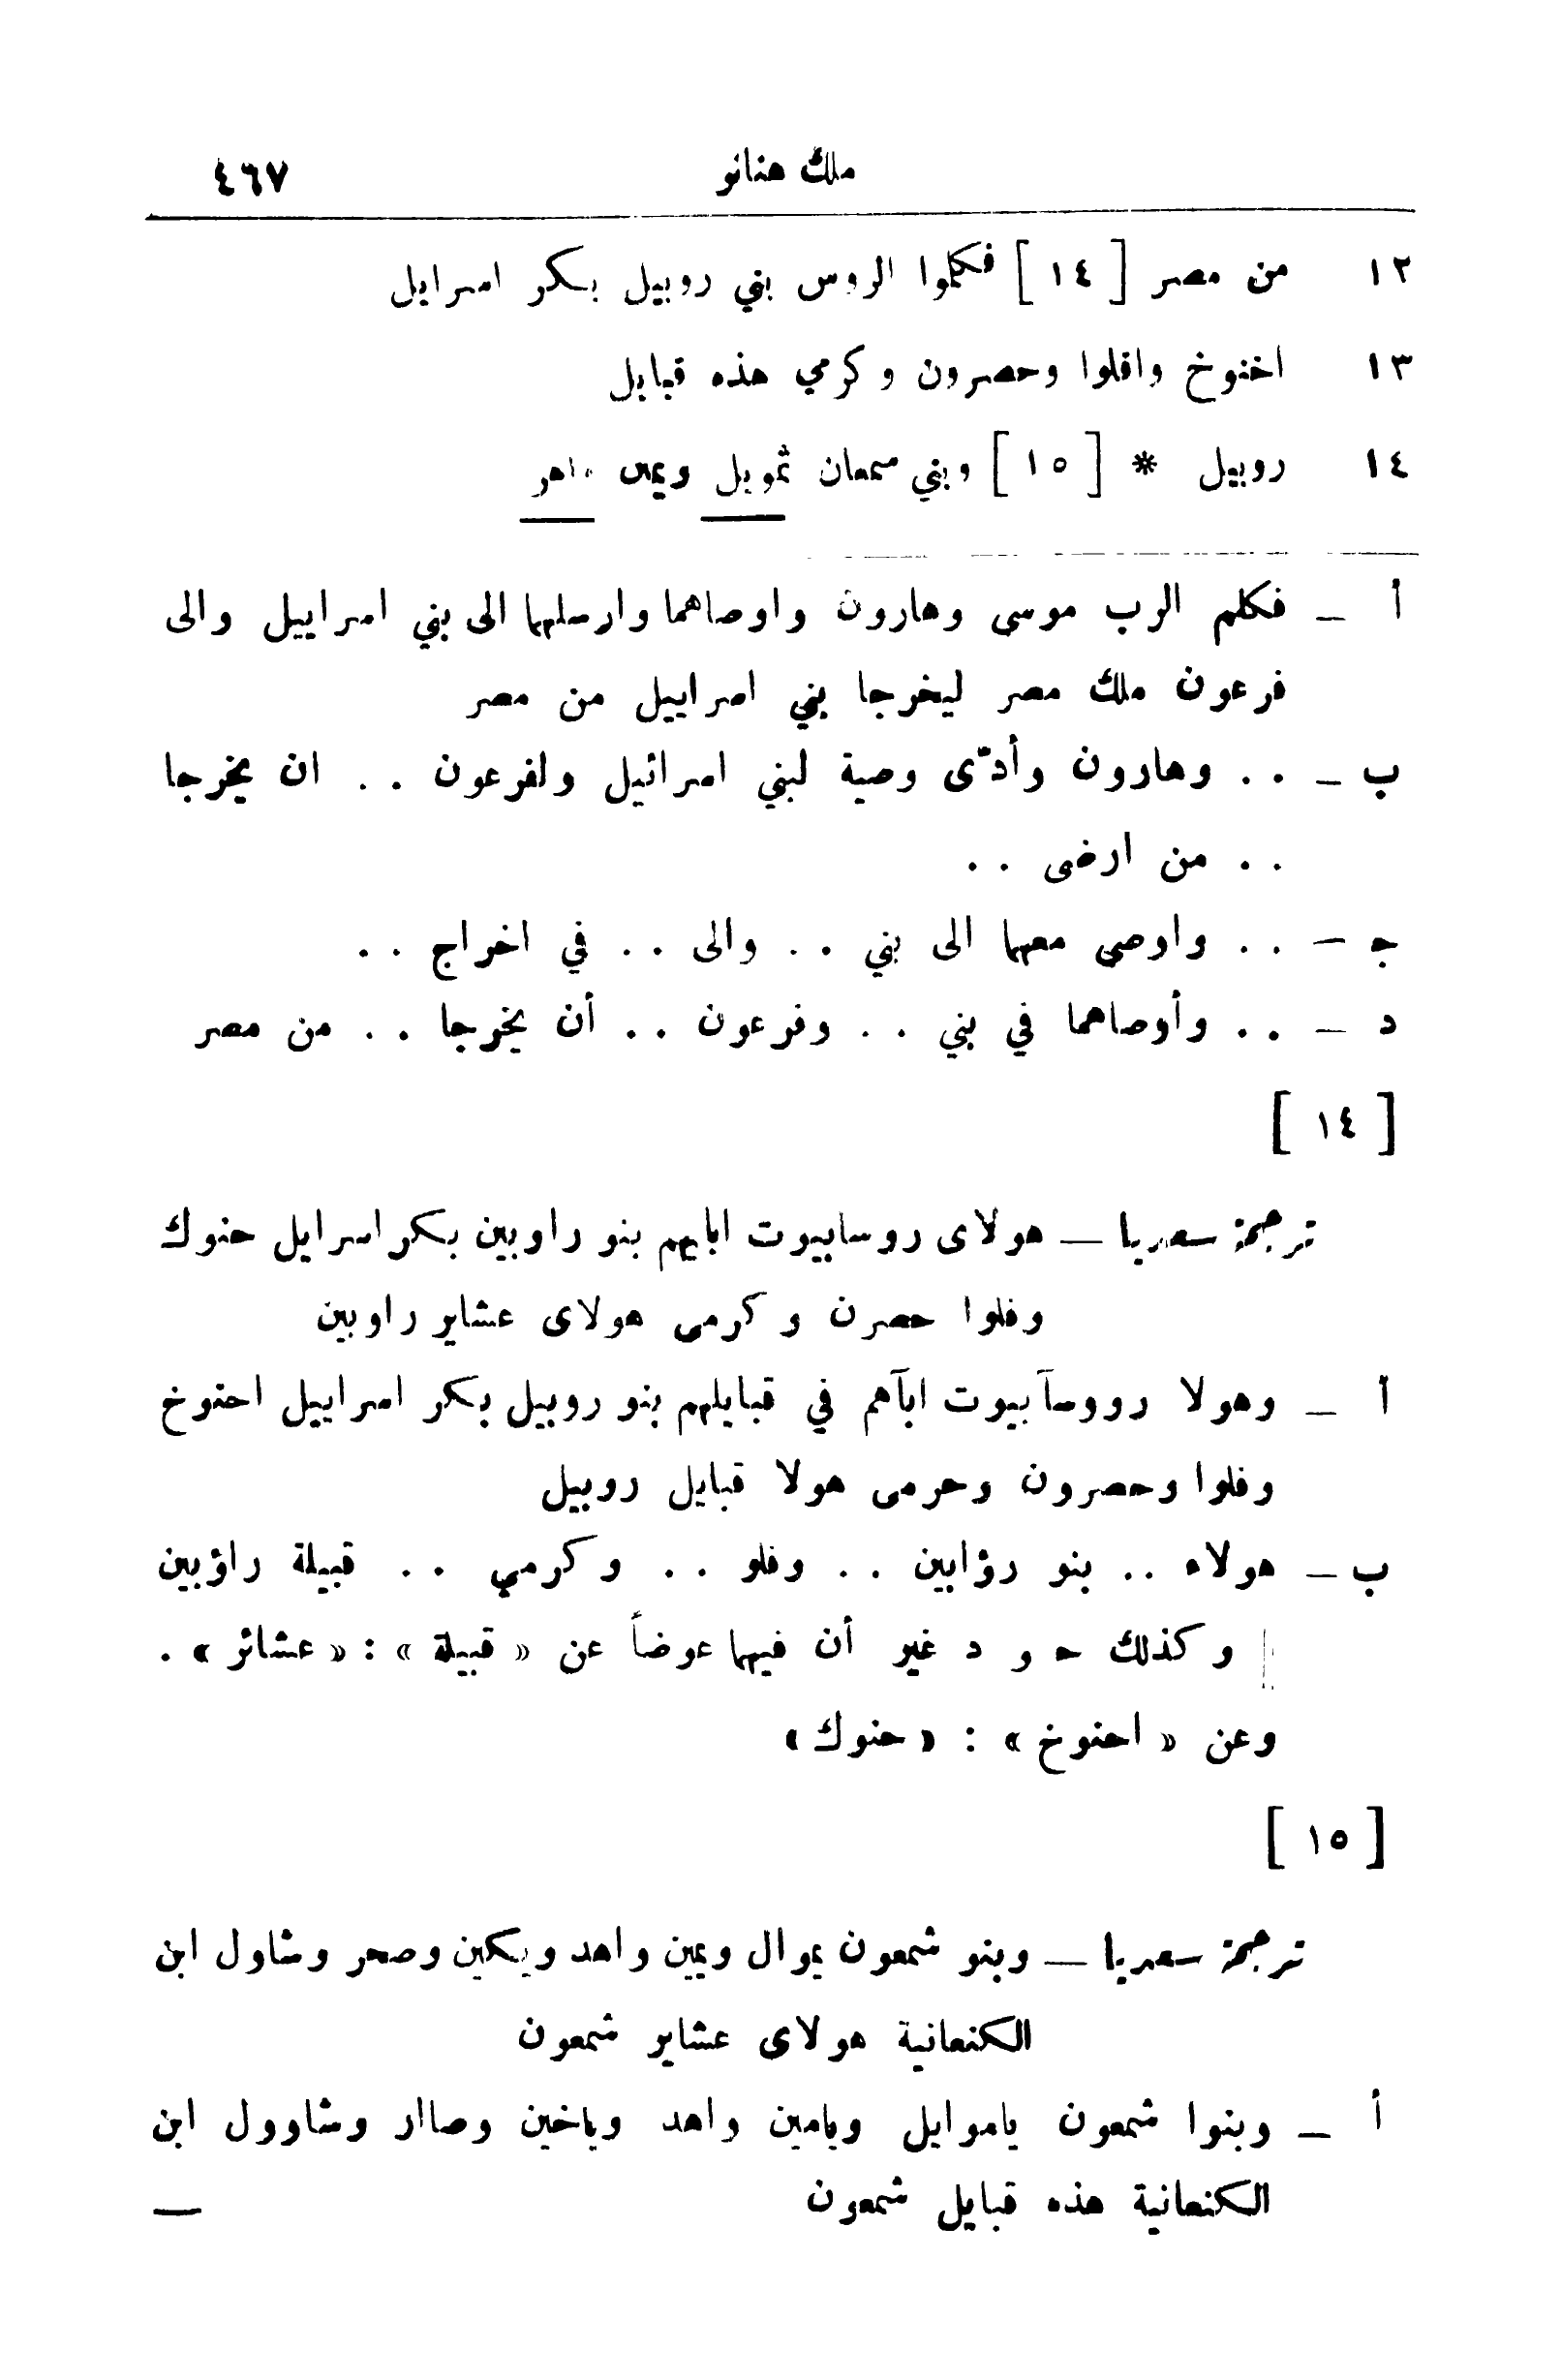 ملك هنانو ٤٦٧
١٢ من مصر [ ١٤ ] فكلموا الروس بني روبيل بكر اسرايل
١٣ اخنوخ وافلوا وحصرون وكرمي هذه قبايل
١٤ روبيل * [ ١٥ ] وبني سمعان ثمويل ويمين
أ ــ فكلم الرب موسى وهارون واوصاهما وارسلهما الى بني اسراييل والى
فرعون ملك مصر ليخرجا بني اسراييل من مصر
ب ــ . . وهارون وأدّى وصية لبني اسرائيل ولفرعون . . ان يخرجا
. . من ارضى . .
ج ــ . . واوصى معهما الى بني . . والى . . في اخراج . .
د ــ . . وأوصاهما في بني . . وفرعون . . أن يخرجا . . من مصر
[ ١٤ ]
ترجمة سعديا ــ هولاى روسابيوت ابايهم بنو راوبين بكر اسرايل حنوك
وفلوا حصرن وكرمى هولاى عشاير راوبين
أ ــ وهولا رووسآ بيوت ابآهم في قبايلهم بنو روبيل بكر اسراييل احنوخ
وفلوا وحصرون وحرمى هولا قبايل روبيل
ب ــ هولاء .. بنو رؤابين . . وفلو . . وكرمي . . قبيلة راؤبين
وكذلك حـ و د غير أن فيهما عوضاً عن « قبيلة » : « عشائر » .
وعن « احنوخ » : « حنوك »
[ ١٥ ]
ترجمة سعديا ــ وبنو شمعون يموال ويمين واهد ويكين وصحر وشاول ابن
الكنعانية هولاى عشاير شمعون
أ ــ وبنوا شمعون ياموايل ويامين واهد وياخين وصاار وشاوول ابن
الكنعانية هذه قبايل شمعون ــ